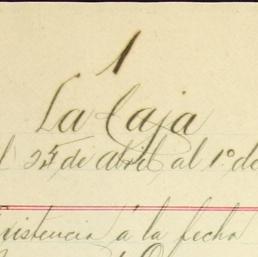 1
La Caja
l 25 de abril al 1.º de
xistencia á la fecha